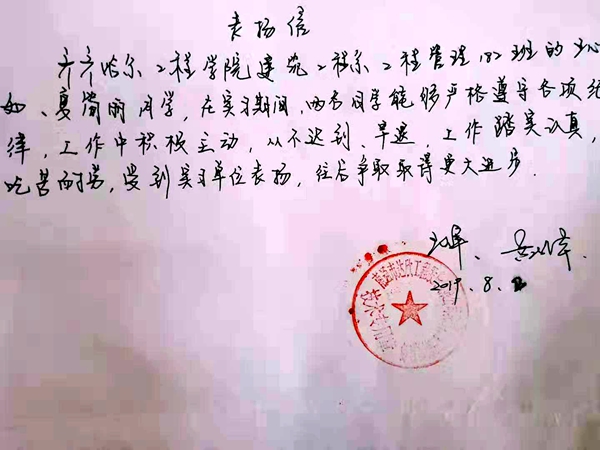 表扬信
齐齐哈尔工程学院建筑工程系工程管理182班的
如、夏丽同学，在实习期间，两名同学能够严格遵守各项纪
律，工作中积极主动，从不迟到、早退，工作踏实认真，
吃苦耐劳，受到实习单位表扬，往后争取取得更大进步.
2019.8.